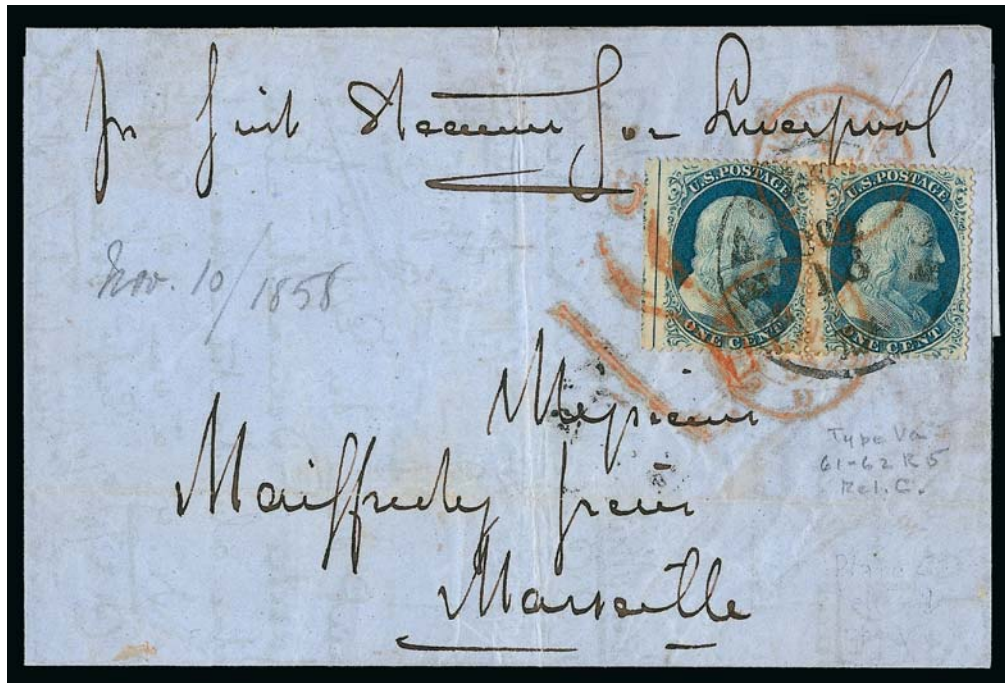 pr first Steamer for Liverpool
U.S. POSTAGE U.S. POSTAGE
ONE CENT ONE CENT
Nov. 10/1858
Messieurs
Maiffredy frères
Marseille
Type Va
61-62 R 5
Rel. C.